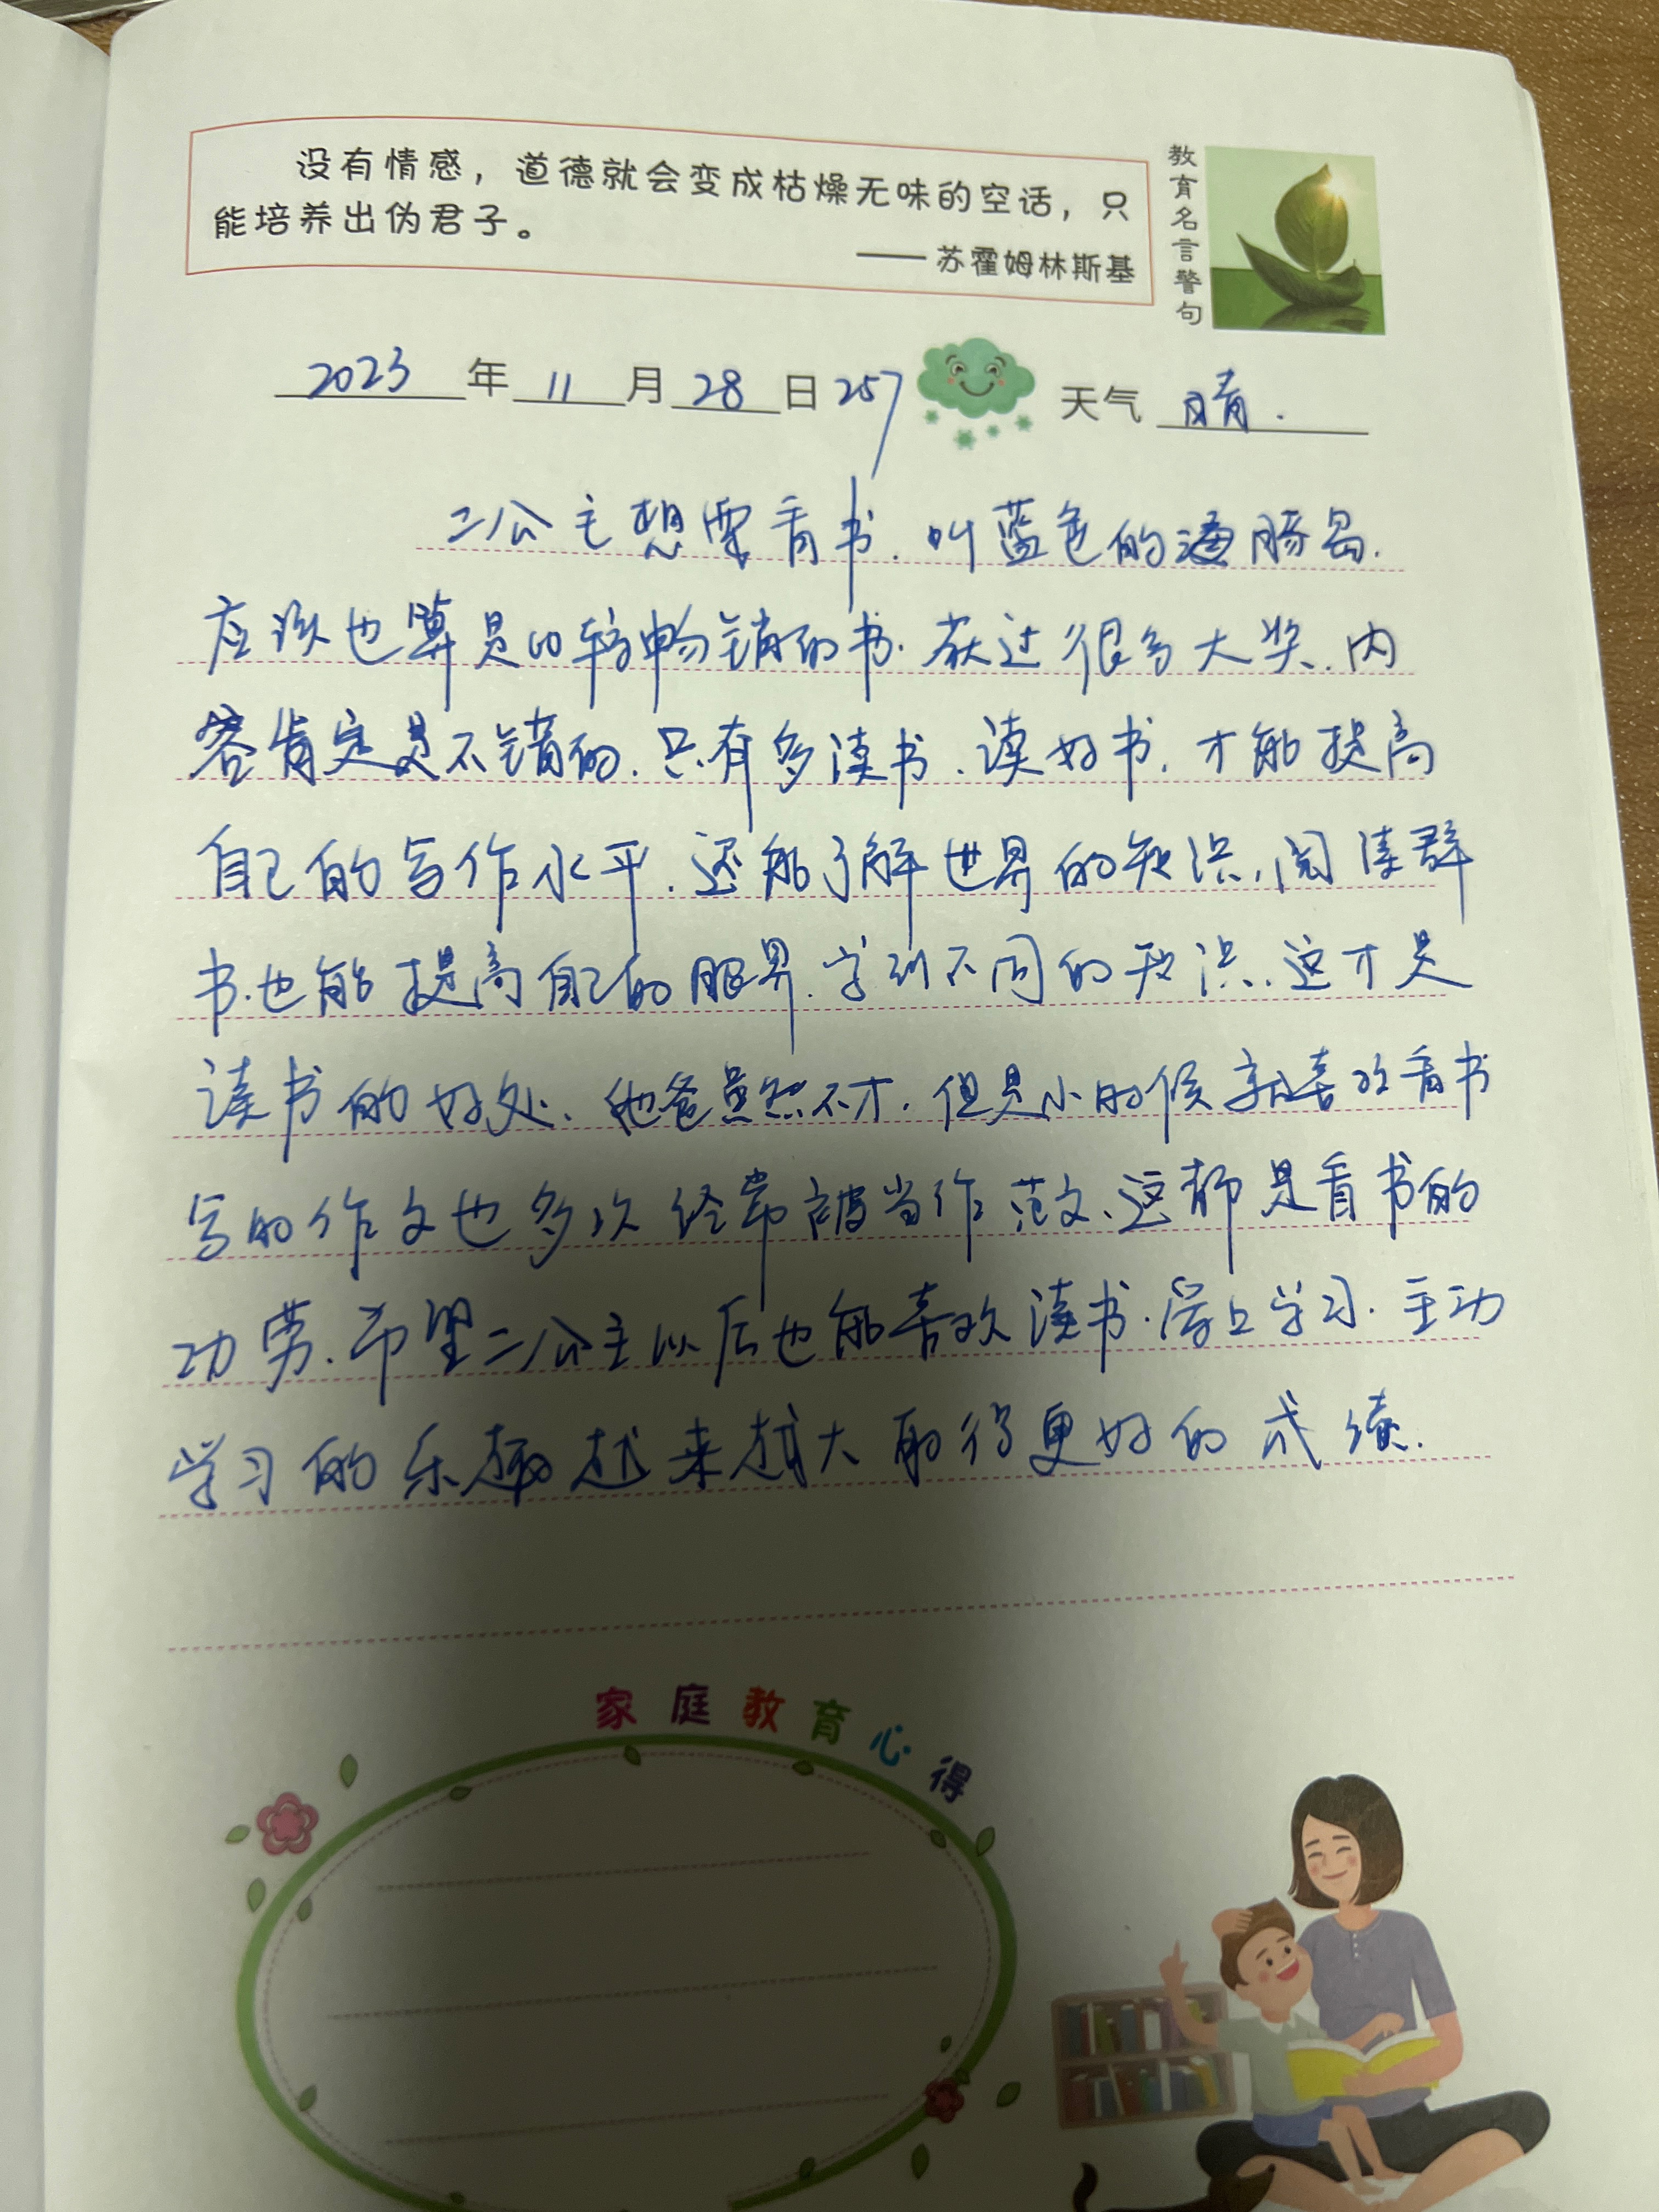 没有情感，道德就会变成枯燥无味的空话，只
能培养出伪君子。
——苏霍姆林斯基
教育名言警句
2023年11月28日 257 天气 晴.
二公主想要看书.叫蓝色的海豚岛.
应该也算是比较畅销的书.获过很多大奖.内
容肯定是不错的.只有多读书.读好书.才能提高
自己的写作水平.还能了解世界的知识,阅读群
书.也能提高自己的眼界.学到不同的知识.这才是
读书的好处.她爸虽然不才.但是小时候就喜欢看书
写的作文也多次经常被当作范文.这都是看书的
功劳.希望二公主以后也能喜欢读书.学习.主动
学习的乐趣越来越大取得更好的成绩.
家庭教育心得